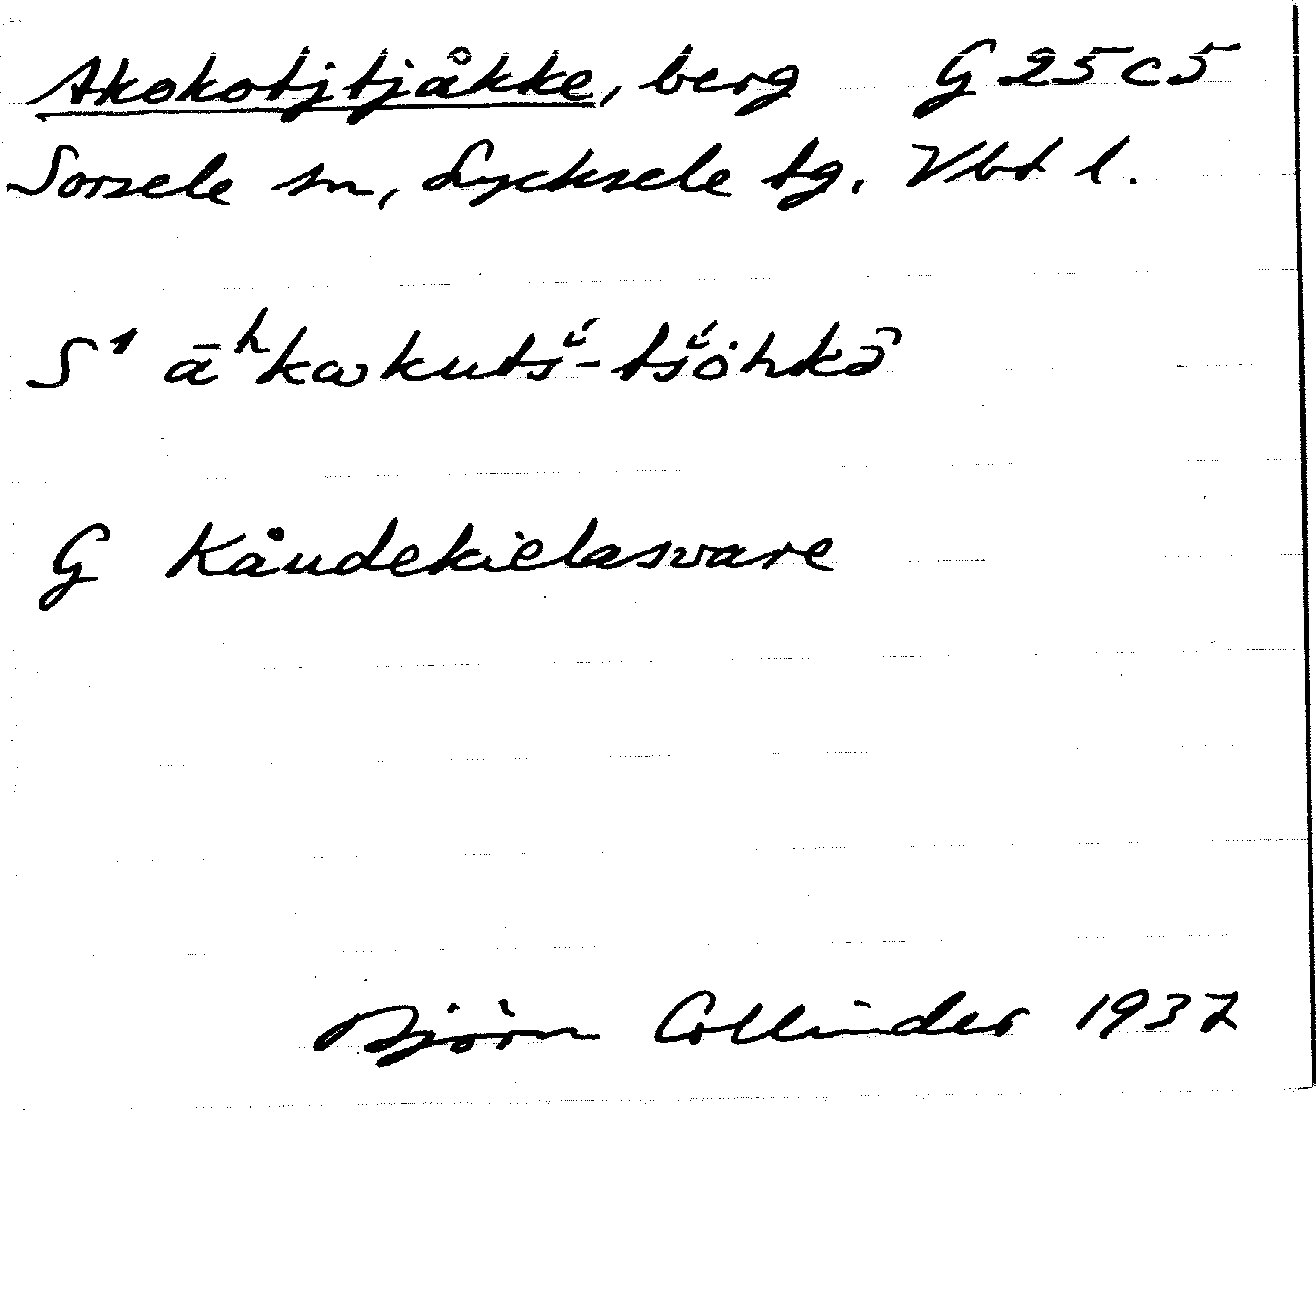 Akokotjtjåkke, berg G 25 c 5
Sorsele sn, Lycksele tg. Vbt l.
S¹ āʰkakutš́-tš́ȯhkə̑
G Kåudekielasvare
Björn Collinder 1937